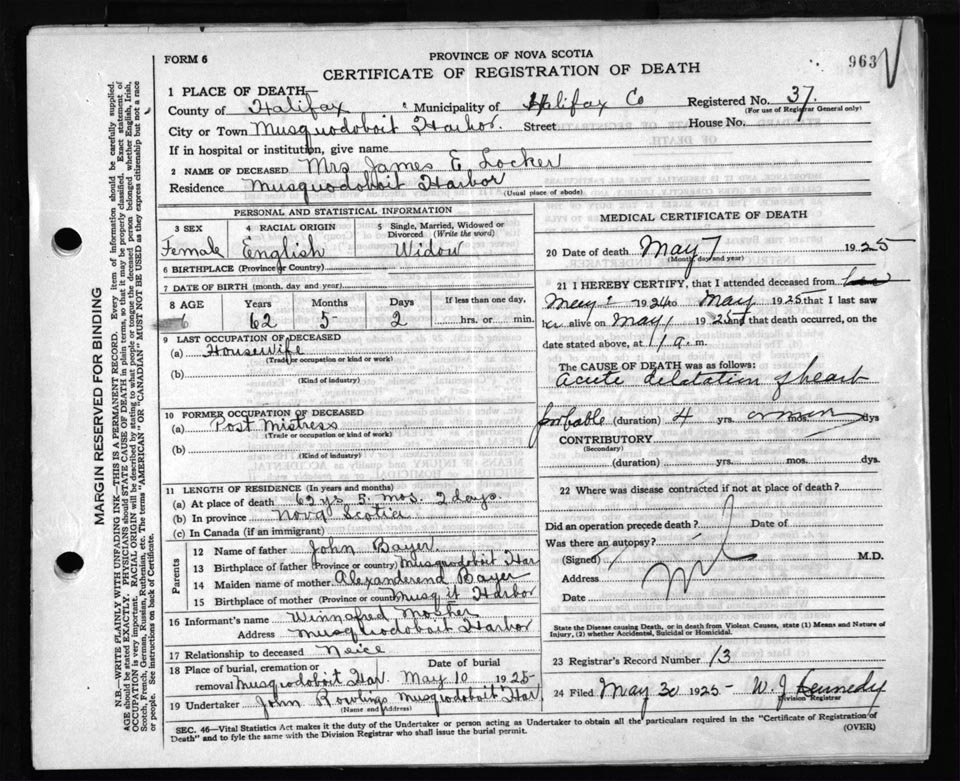 963
FORM 6
PROVINCE OF NOVA SCOTIA
CERTIFICATE OF REGISTRATION OF DEATH
1 PLACE OF DEATH
County of Halifax Municipality of Halifax Co Registered No. 37
(For use of Registrar General only)
City or Town Musquodoboit Harbor. Street House No.
If in hospital or institution, give name
2 NAME OF DECEASED Mrs James E Locker
Residence Musquodoboit Harbor
(Usual place of abode)
PERSONAL AND STATISTICAL INFORMATION
3 SEX Female
4 RACIAL ORIGIN English
5 Single, Married, Widowed or Divorced (Write the word) Widow
6 BIRTHPLACE (Province or Country)
7 DATE OF BIRTH (month, day and year)
8 AGE Years Months Days If less than one day,
62 5 2 hrs. or min.
9 LAST OCCUPATION OF DECEASED
(a) Housewife
(Trade or occupation or kind of work)
(b)
(Kind of industry)
10 FORMER OCCUPATION OF DECEASED
(a) Post Mistress
(Trade or occupation or kind of work)
(b)
(Kind of industry)
11 LENGTH OF RESIDENCE (In years and months)
(a) At place of death 62 ys 5. mos. 2 days.
(b) In province Nova Scotia
(c) In Canada (if an immigrant)
Parents
12 Name of father John Bayer.
13 Birthplace of father (Province or country) Musquodoboit Har
14 Maiden name of mother Alexanderena Bayer
15 Birthplace of mother (Province or country) Musq it Harbor
16 Informant's name Winnafred Mosher
Address Musquodoboit Harbor
17 Relationship to deceased Neice
18 Place of burial, cremation or removal Musquodoboit Har. Date of burial May 10 1925
19 Undertaker John Rowlings Musquodoboit Har
(Name and Address)
MEDICAL CERTIFICATE OF DEATH
20 Date of death May 7 1925
(Month, day and year)
21 I HEREBY CERTIFY, that I attended deceased from
May 1924 to May 1925 that I last saw
her alive on May 1 1925 and that death occurred, on the
date stated above, at 1 a. m.
The CAUSE OF DEATH was as follows:
Acute dilatation of heart
probable (duration) 4 yrs. mos. dys
CONTRIBUTORY
(Secondary)
(duration) yrs. mos. dys.
22 Where was disease contracted if not at place of death?
Did an operation precede death? Date of
Was there an autopsy?
(Signed) M.D.
Address
Date
State the Disease causing Death, or in death from Violent Causes, state (1) Means and Nature of
Injury, (2) whether Accidental, Suicidal or Homicidal.
23 Registrar's Record Number 13
24 Filed May 30 1925 W. J Kennedy
Division Registrar
SEC. 46—Vital Statistics Act makes it the duty of the Undertaker or person acting as Undertaker to obtain all the particulars required in the "Certificate of Registration of
Death" and to fyle the same with the Division Registrar who shall issue the burial permit.
(OVER)
MARGIN RESERVED FOR BINDING
N.B.—WRITE PLAINLY WITH UNFADING INK—THIS IS A PERMANENT RECORD. Every item of information should be carefully supplied.
AGE should be stated EXACTLY. PHYSICIANS should STATE CAUSE OF DEATH in plain terms, so that it may be properly classified. Exact statement of
OCCUPATION is very important. RACIAL ORIGIN will be described by stating to what people or tongue the deceased person belonged whether English, Irish,
Scotch, French, German, Russian, Ruthenian, etc. The terms "AMERICAN" OR "CANADIAN" MUST NOT BE USED as they express citizenship but not a race
or people. See instructions on back of Certificate.